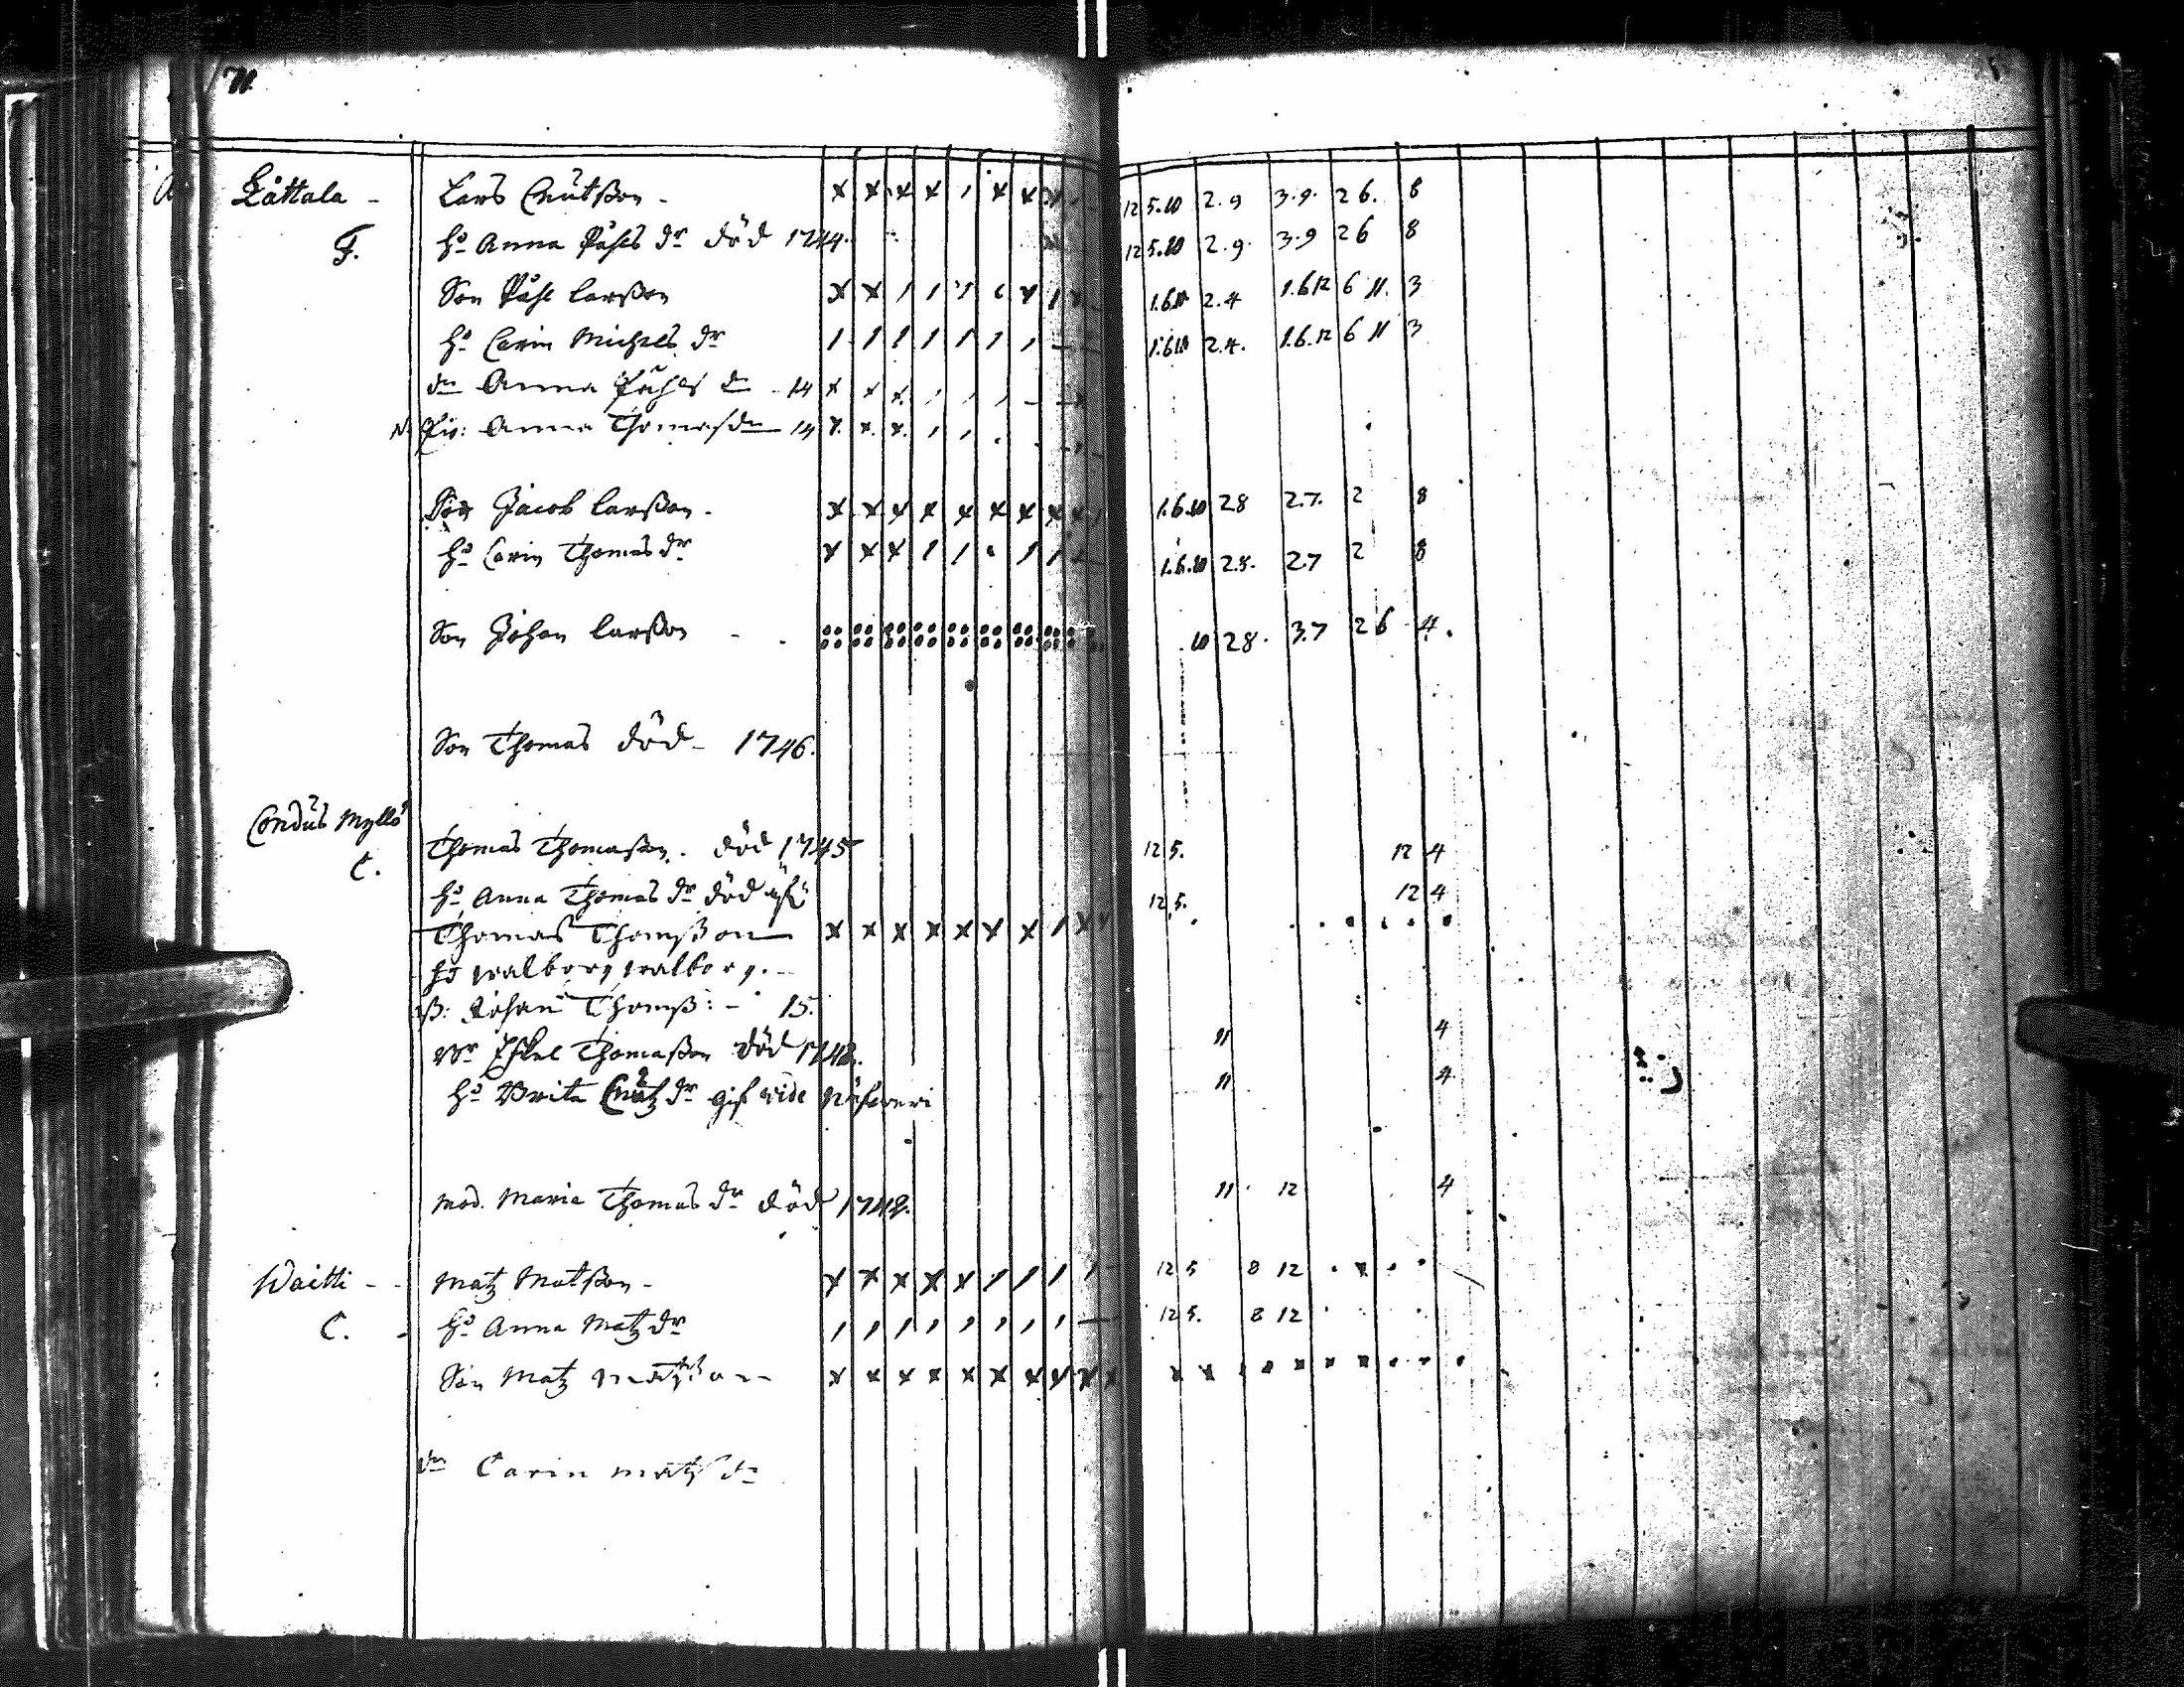 71.
Låttala - Lars Cnutßon - x x x x / x x x 12 5.10 2.9 3.9. 2 6. 8
F. hs Anna Påhls dr död 1744. 12 5.10 2.9. 3.9 2 6 8
Son Påhl Larßon x x / / / x / 1.6.10 2.4 1.6 12 6 11. 3
hs Carin Michels dr / / / / / / / 1.6.10 2.4. 1.6.12 6 11 3
dr Anna Påhls dr - 14 x x x / / /
Pig: Anna Thomasdr 14 x. x. x. / /
Son Jacob Larßon - x x x x x x x x x 1.6.10 28 2.7. 2 8
hs Carin Thomas dr x x x / / / / 1.6.10 2.5. 2.7 2 8
Son Johan Larßon - - 10 28. 3.7 2 6 4.
Son Thomas död - 1746.
Condus Myllö
C. Thomas Thomaßon. död 1745 12 5. 12 4
hs Anna Thomas dr död 12.5. 12 4
Thomas Thomßon x x x x x x x / x x
hs walborg walborg. -
ß: Johan Thomß: - 15.
Br Eskel Thomaßon död 1748. 11 4
hs Brita Cnutz dr gift vide 11 4
Mod. Maria Thomas dr död 1748. 11 12 4
Waitti - - Matz Matßon - x x x x x / / / / 12 5 8 12
C. - hs Anna Matz dr / / / / / / / / - 12 5. 8 12
Son Matz Matzßon x x x x x x x x x x
dr Carin matz dr